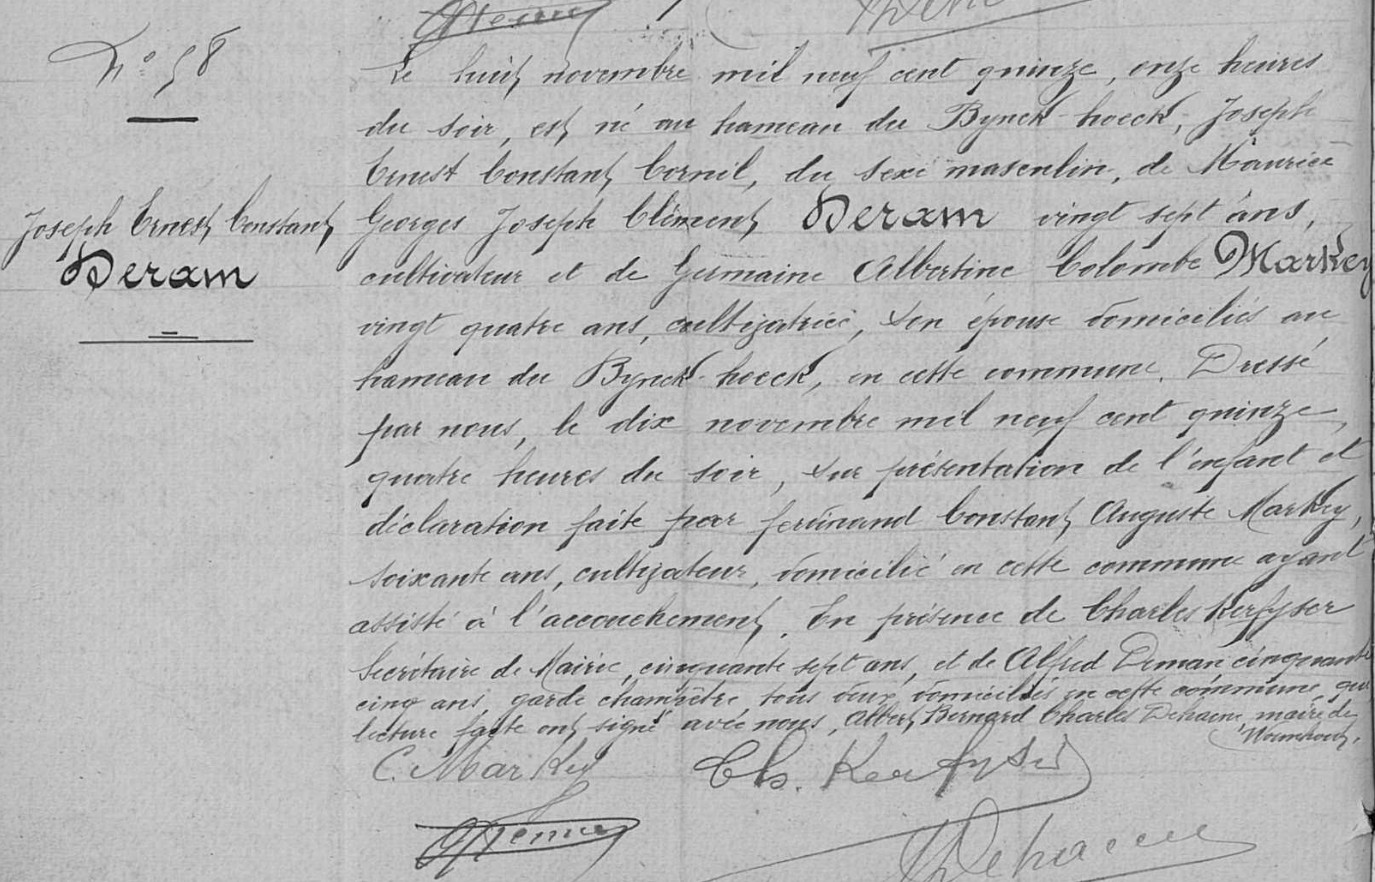 N° 58
Joseph Ernest Constant
Deram
Le huit novembre mil neuf cent quinze, onze heures
du soir, est né au hameau du Bynck-hoeck, Joseph
Ernest Constant Cornil, du sexe masculin, de Maurice
Georges Joseph Clément Deram vingt sept ans,
cultivateur et de Germaine Albertine Colombe Markey
vingt quatre ans, cultivatrice, son épouse domiciliés au
hameau du Bynck-hoeck, en cette commune. Dressé
par nous, le dix novembre mil neuf cent quinze,
quatre heures du soir, sur présentation de l'enfant et
déclaration faite par ferdinand Constant Auguste Markey,
soixante ans, cultivateur, domicilié en cette commune ayant
assisté à l'accouchement. En présence de Charles Kerfyser
Secrétaire de Mairie, cinquante sept ans, et de Alfred Deman cinquante
cinq ans, garde champêtre, tous deux domiciliés en cette commune, qui
lecture faite ont signé avec nous, Albert Bernard Charles Dehaene, maire de
Wormhoudt.
C. Markey Ch. Kerfyser
Dehaene